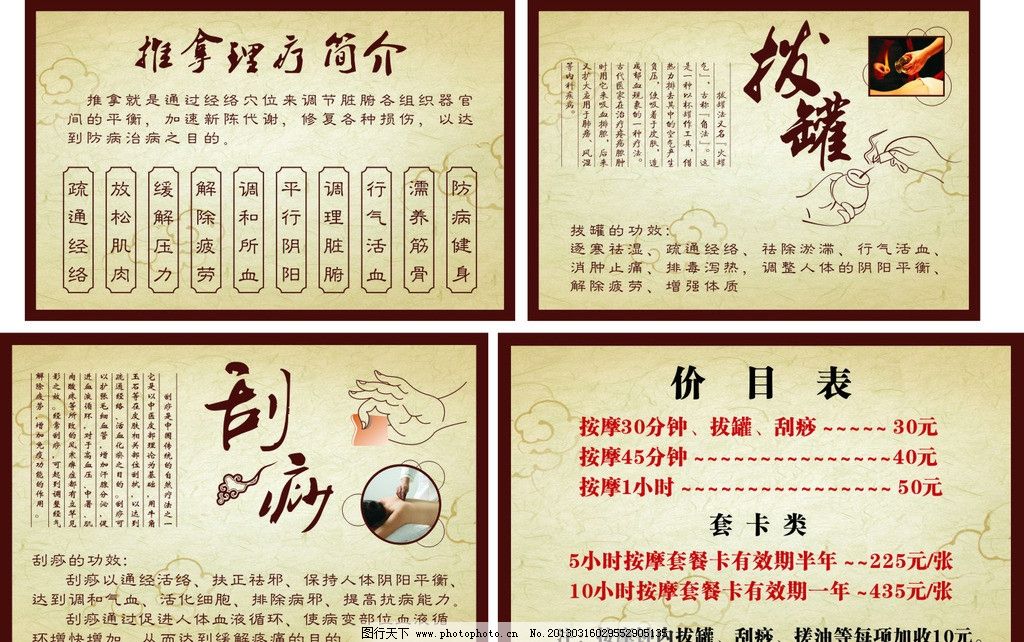 推拿理疗简介
推拿就是通过经络穴位来调节脏腑各组织器官
间的平衡，加速新陈代谢，修复各种损伤，以达
到防病治病之目的。
疏通经络
放松肌肉
缓解压力
解除疲劳
调和所血
平行阴阳
调理脏腑
行气活血
濡养筋骨
防病健身
拨罐
拔罐法又名『火罐
气』，古称『角法』。这
是一种以杯罐作工具，借
热力排去其中的空气产生
负压，使吸着于皮肤，造
成郁血现象的一种疗法。
古代医家在治疗疮疡脓肿
时用它来吸血排脓，后来
又扩大应用于肺痨、风湿
等内科疾病。
拔罐的功效：
逐寒祛湿、疏通经络、祛除淤滞、行气活血、
消肿止痛、排毒泻热，调整人体的阴阳平衡、
解除疲劳、增强体质
刮痧
刮痧是中国传统的自然疗法之一
它是以中医皮部理论为基础，用牛角
玉石等在皮肤相关部位刮拭，以达到
疏通经络、活血化瘀之目的。刮痧可
以扩张毛细血管，增加汗腺分泌，促
进血液循环，对于高血压、中暑、肌
肉酸疼等所致的风寒痹症都有立竿见
影之效。经常刮痧，可起到调整经气
解除疲劳，增加免疫功能的作用。
刮痧的功效：
刮痧以通经活络、扶正祛邪、保持人体阴阳平衡、
达到调和气血、活化细胞、排除病邪、提高抗病能力。
刮痧通过促进人体血液循环、使病变部位血液循
环增快增加，从而达到缓解疼痛的目的
价目表
按摩30分钟、拔罐、刮痧~~~~~30元
按摩45分钟~~~~~~~~~~~~~~~40元
按摩1小时~~~~~~~~~~~~~~~~50元
套卡类
5小时按摩套餐卡有效期半年~~225元/张
10小时按摩套餐卡有效期一年~435元/张
内拔罐、刮痧、搓油等每项加收10元。
图行天下 www.photophoto.cn No.20130316029552905135